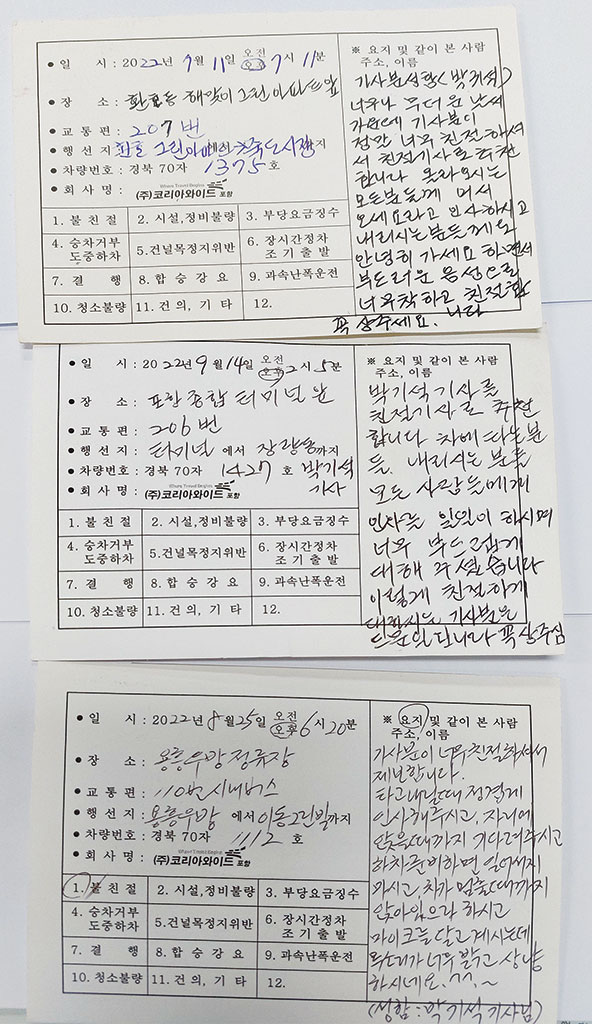 • 일 시 : 2022년 9월 11일 오전 오후 7시 11분
• 장 소 : 환호동 해맞이 그린 아파트앞
• 교 통 편 : 207번
• 행 선 지 : 환호 그린아파트에서 죽도시장까지
• 차량번호 : 경북 70자 1375호
• 회 사 명 : Where Travel Begins (주)코리아와이드 포항
1. 불 친 절 2. 시설,정비불량 3. 부당요금징수
4. 승차거부 도중하차 5.건널목정지위반 6. 장시간정차 조 기 출 발
7. 결 행 8. 합 승 강 요 9. 과속난폭운전
10. 청소불량 11. 건 의, 기 타 12.
※ 요지 및 같이 본 사람
주소, 이름
기사분성함(박기석)
너무나 무더운 날씨
가운데 기사분이
정말 너무 친절하셔
서 친절기사로 추천
합니다 올라오시는
모든분들께 먼저
오세요라고 인사하시고
내리시는분들께도
안녕히 가세요 하면서
부드러운 음성으로
너무착하고 친절함
니다
꼭 상주세요.
• 일 시 : 2022년 9월 14일 오전 오후 2시 5분
• 장 소 : 포항 종합 터미널 앞
• 교 통 편 : 206번
• 행 선 지 : 터미널 에서 장량동까지
• 차량번호 : 경북 70자 1427호 박기석
기사
• 회 사 명 : Where Travel Begins (주)코리아와이드 포항
1. 불 친 절 2. 시설,정비불량 3. 부당요금징수
4. 승차거부 도중하차 5.건널목정지위반 6. 장시간정차 조 기 출 발
7. 결 행 8. 합 승 강 요 9. 과속난폭운전
10. 청소불량 11. 건 의, 기 타 12.
※ 요지 및 같이 본 사람
주소, 이름
박기석 기사를
친절기사로 추천
합니다 차에 타는분
들. 내리시는 분들
모든 사람들에게
인사를 일일이 하시며
너무 부드럽게
대해 주셨습니다
이렇게 친절하게
대하시는 기사분은
드문일입니다 꼭 상주심
• 일 시 : 2022년 8월 25일 오전 오후 6시 20분
• 장 소 : 용흥우방정류장
• 교 통 편 : 110번 시내버스
• 행 선 지 : 용흥우방 에서 이동그린빌까지
• 차량번호 : 경북 70자 1112호
• 회 사 명 : Where Travel Begins (주)코리아와이드 포항
1. 불 친 절 2. 시설,정비불량 3. 부당요금징수
4. 승차거부 도중하차 5.건널목정지위반 6. 장시간정차 조 기 출 발
7. 결 행 8. 합 승 강 요 9. 과속난폭운전
10. 청소불량 11. 건 의, 기 타 12.
※ 요지 및 같이 본 사람
주소, 이름
기사분이 너무 친절하셔서
제보합니다.
타고내릴때 정겹게
인사해주시고, 자리에
앉을때까지 기다려주시고
하차준비하면 일어서지
마시고, 차가 멈출때까지
앉아있으라 하시고
마이크를 달고계시는데
목소리가 너무 밝고 상냥
하시네요. ^^.~
(성함 : 박기석 기사님)